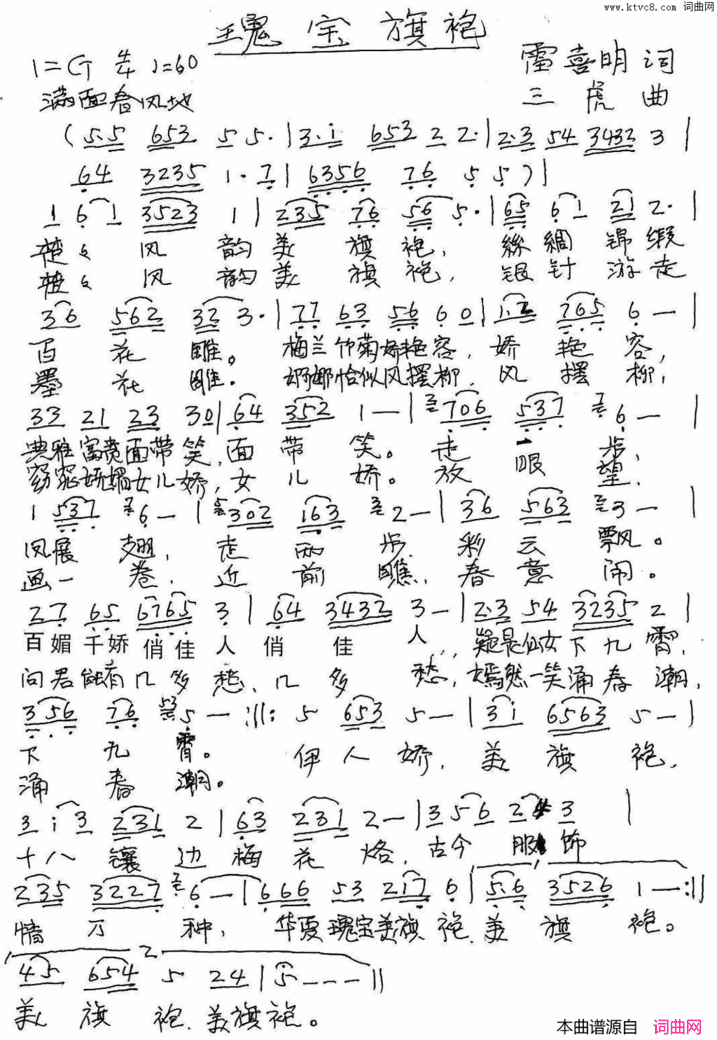 www.ktvc8.com 词曲网
瑰宝旗袍
1=G 4/4 ♩=60
雷喜明 词
满面春风地
三虎 曲
(5·5 653 5 5· | 3·i 653 2 2· | 2·3 54 3432 3 |
64 3235 1·7 | 6356 76 5 5) |
1 61 3523 1 | 235 76 56 5· | 65 61 21 2· |
楚楚风韵美旗袍，丝绸锦缎
楚楚风韵美旗袍，银针游走
36 562 32 3· | 77 63 56 60 | 1·2 765 6— |
百花雕。梅兰竹菊娇艳容，娇艳容，
墨花雕。婀娜恰似风摆柳，风摆柳，
33 21 23 30 | 64 352 1— | 706 537 6— |
典雅富贵面带笑，面带笑。走一步，
窈窕娇媚女儿娇，女儿娇。放眼望，
1 537 6— | 302 163 2— | 36 563 3— |
凤展翅，走两步，彩云飘。
画一卷，近前瞧，春意闹。
27 65 6765 3 | 64 3432 3— | 2·3 54 3235 2 |
百媚千娇俏佳人俏佳人，疑是仙女下九霄，
问君能有几多愁，几多愁，嫣然一笑涌春潮，
356 76 5— :||: 5 653 5— | 3i 6563 5— |
下九霄。伊人娇，美旗袍，
涌春潮。
3 i3 231 2 | 63 231 2— | 3 56 24 3 |
十八镶边梅花烙，古今服饰
235 3227 6— | 666 53 217 6 | 5·6 3526 1— :||
情万种，华夏瑰宝美旗袍，美旗袍。
2
45 654 5 24 | 5——— ||
美旗袍，美旗袍。
本曲谱源自 词曲网